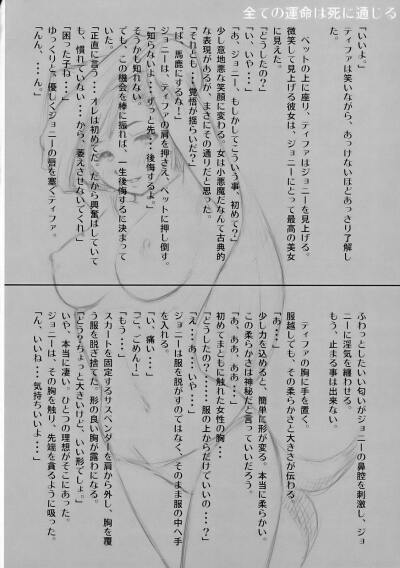 全ての運命は死に通じる
「いいよ。」
ティファは笑いながら、あっけないほどあっさり了解し
た。
ベットの上に座り、ティファはジョニーを見上げる。
微笑して見上げる彼女は、ジョニーにとって最高の美女
に見えた。
「どうしたの？」
「い、いや・・・」
「あ、ジョニー、もしかしてこういう事、初めて？」
少し意地悪な笑顔に変わる。女は小悪魔だなんて古典的
な表現があるが、まさにその通りだと思った。
「それとも・・・覚悟が揺らいだ？」
「ば、馬鹿にするな！」
ジョニーは、ティファの肩を押さえ、ベットに押し倒す。
「知らないよ・・・ずっと先・・・後悔するよ」
そうかも知れない。
でも、この機会を棒に振れば、一生後悔するに決まって
いた。
「正直に言う・・・オレは初めてだ。だから興奮はしていて
も、慣れていない・・・から、萎えさせないでくれ」
「困った子ね・・・」
ゆっくりと、優しくジョニーの唇を塞ぐティファ。
「んん・・・ん。」
ふわっとしたいい匂いがジョニーの鼻腔を刺激し、ジョ
ニーに淫気を纏わせる。
もう、止まる事は出来ない。
ティファの胸に手を置く。
服越しても、その柔らかさと大きさが伝わる
「あ・・・」
少し力を込めると、簡単に形が変る。本当に柔らかい。
この柔らかさは神秘だと言っていいだろう。
「あ、ああ、ああ・・・」
初めてまともに触れた女性の胸・・・
「どうしたの？・・・・・・服の上からだけでいいの・・・？」
「え・・・あ・・・いや・・・」
ジョニーは服を脱がすのではなく、そのまま服の中へ手
を入れる。
「い、痛い・・・」
「ご、ごめん！」
「もう・・・」
スカートを固定するサスペンダーを肩から外し、胸を覆
う服を脱ぎ捨てた。形の良い胸が露わになる。
「どう？ちょっと大きいけど、いい形でしょ。」
いや、本当に凄い。ひとつの理想がそこにあった。
ジョニーは、その胸を触り、先端を貪るように吸った。
「ん、いいね・・・気持ちいいよ・・・」